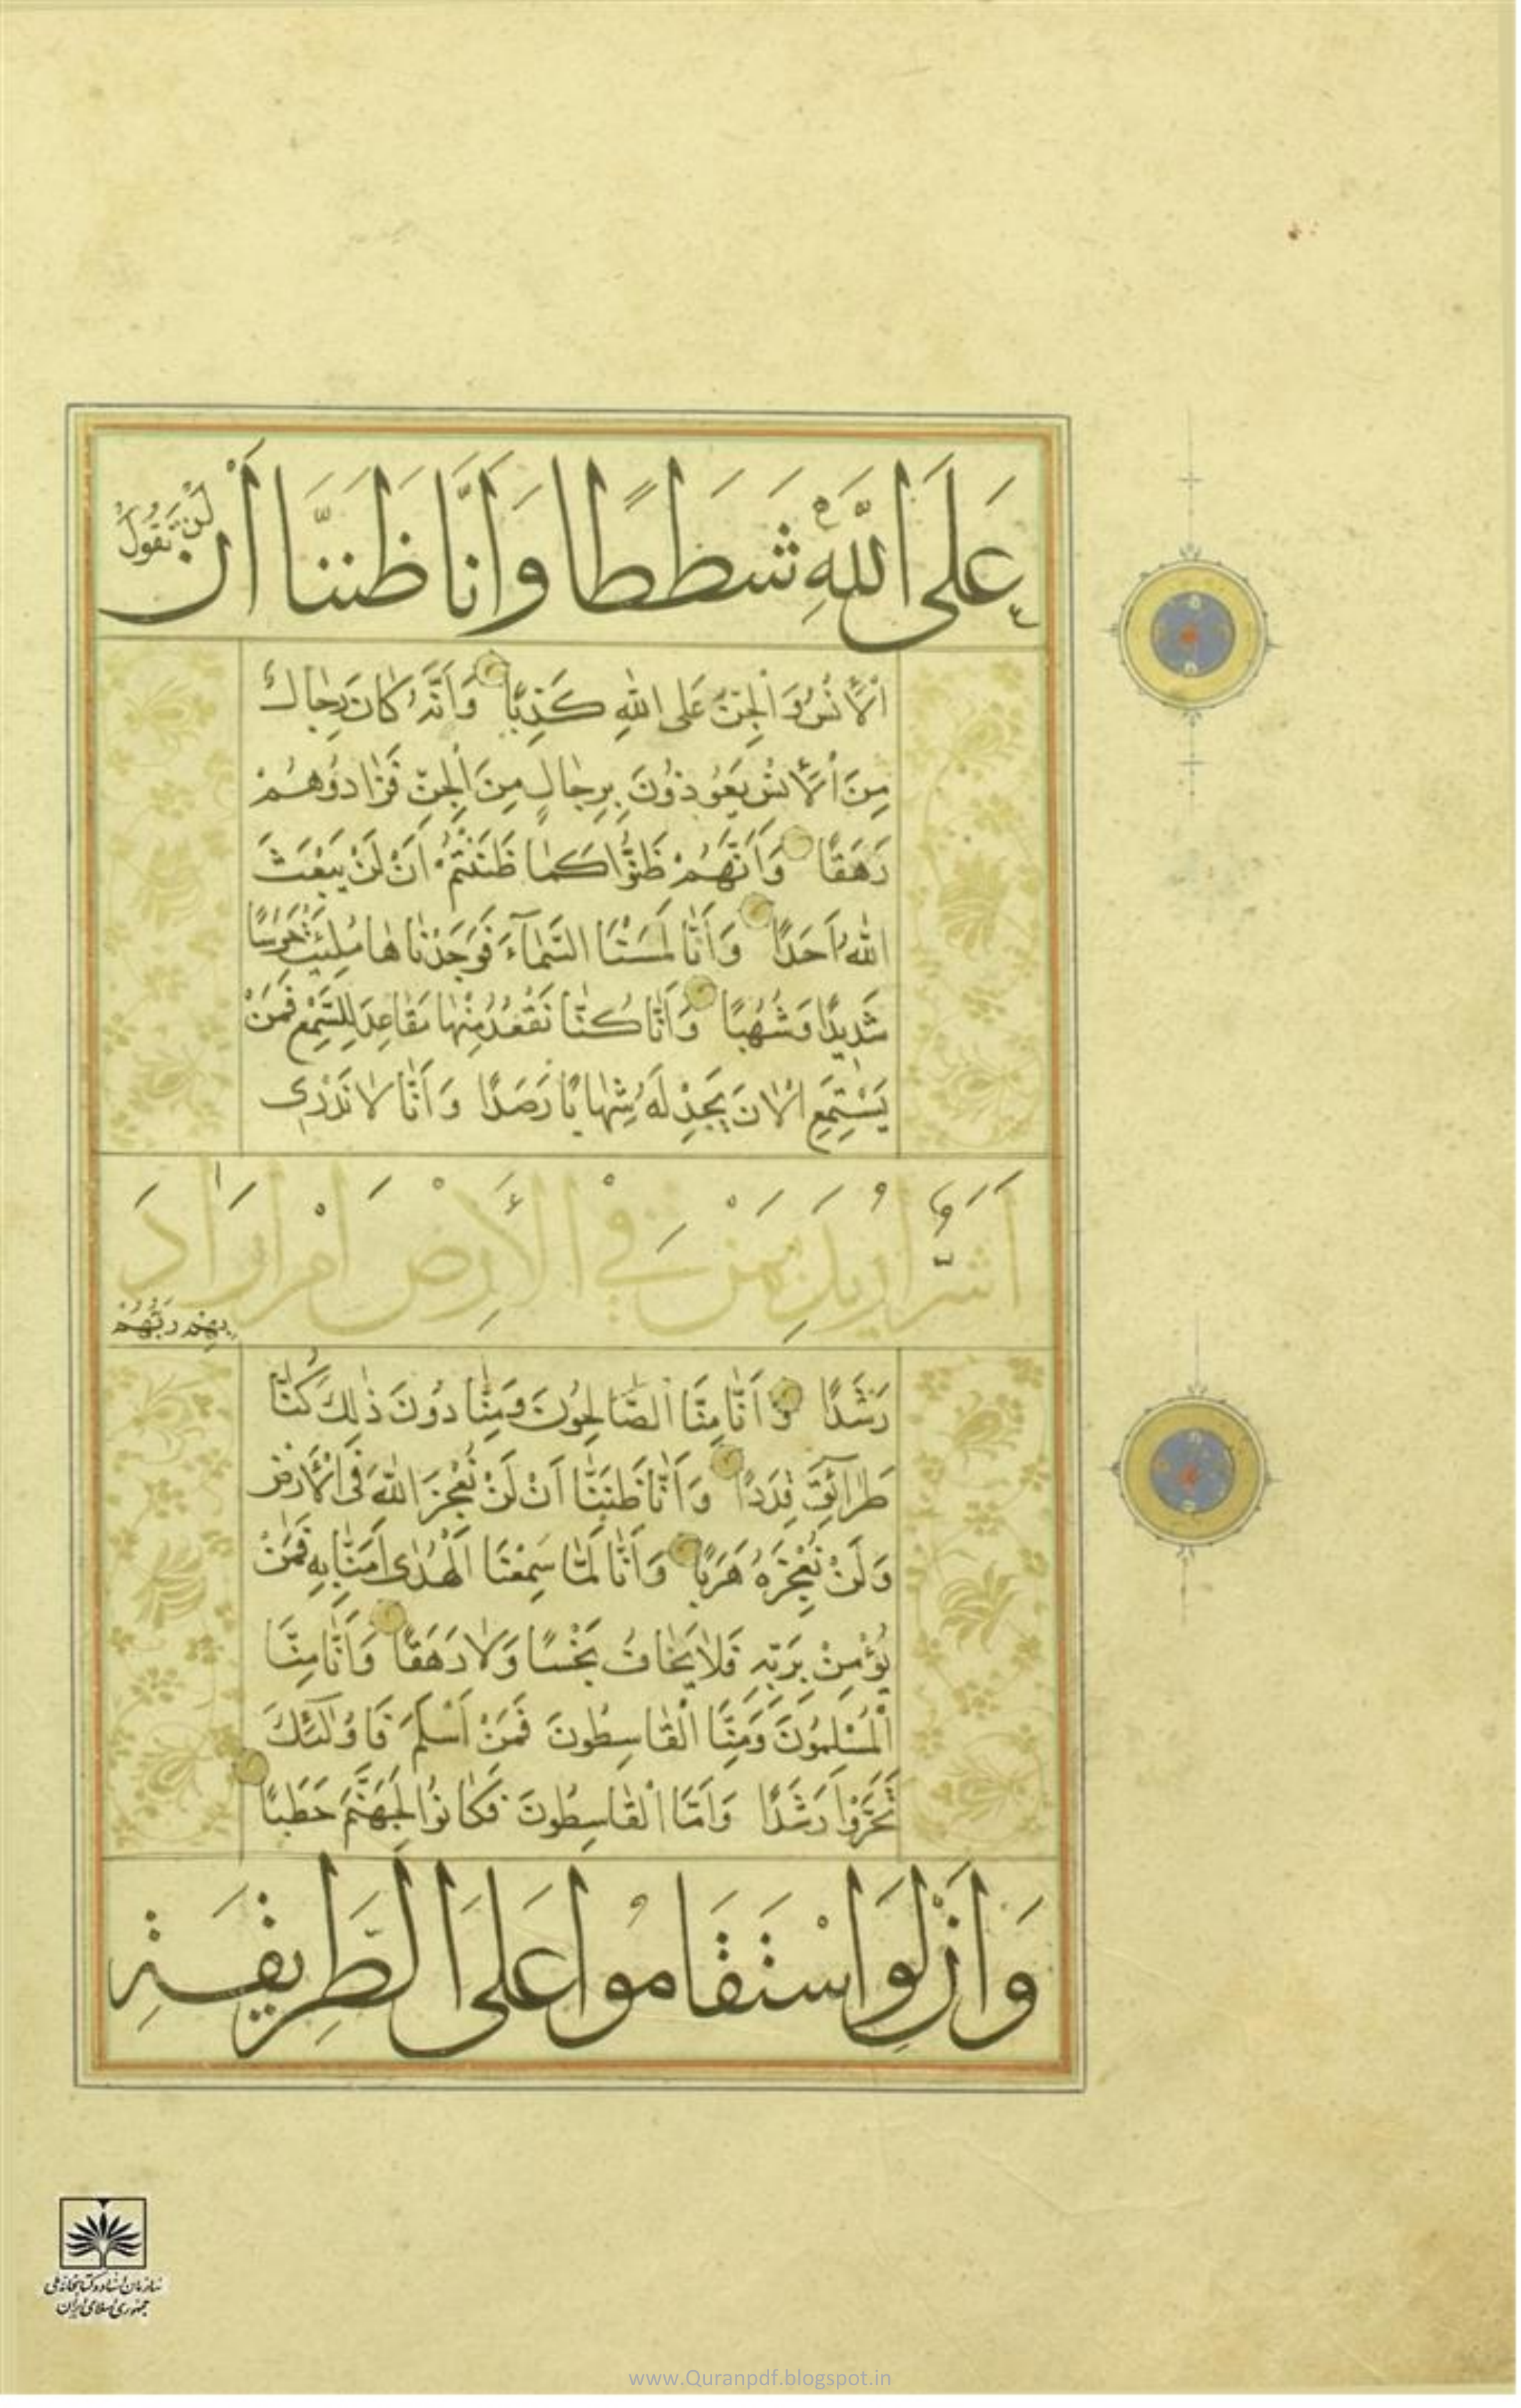 عَلَى اللَّهِ شَطَطًا وَأَنَّا ظَنَنَّا أَنْ لَنْ تَقُولَ
الْأِنْسُ وَالْجِنُّ عَلَى اللهِ كَذِبًا وَأَنَّهُ كَانَ رِجَالٌ
مِنَ الْأِنْسِ يَعُوذُونَ بِرِجَالٍ مِنَ الْجِنِّ فَزَادُوهُمْ
رَهَقًا وَأَنَّهُمْ ظَنُّوا كَمَا ظَنَنْتُمْ أَنْ لَنْ يَبْعَثَ
اللهُ أَحَدًا وَأَنَّا لَمَسْنَا السَّمَآءَ فَوَجَدْنَاهَا مُلِئَتْ حَرَسًا
شَدِيدًا وَشُهُبًا وَأَنَّا كُنَّا نَقْعُدُ مِنْهَا مَقَاعِدَ لِلسَّمْعِ فَمَنْ
يَسْتَمِعِ الْانَ يَجِدْ لَهُ شِهَابًا رَصَدًا وَأَنَّا لَا نَدْرِى
أَشَرٌّ أُرِيدَ بِمَنْ فِي الْأَرْضِ أَمْ أَرَادَ
بِهِمْ رَبُّهُمْ
رَشَدًا وَأَنَّا مِنَّا الصَّالِحُونَ وَمِنَّا دُونَ ذٰلِكَ كُنَّا
طَرَآئِقَ قِدَدًا وَأَنَّا ظَنَنَّا أَنْ لَنْ نُعْجِزَ اللهَ فِى الْأَرْضِ
وَلَنْ نُعْجِزَهُ هَرَبًا وَأَنَّا لَمَّا سَمِعْنَا الْهُدٰى اٰمَنَّا بِهِ فَمَنْ
يُؤْمِنْ بِرَبِّهِ فَلَا يَخَافُ بَخْسًا وَلَا رَهَقًا وَأَنَّا مِنَّا
الْمُسْلِمُونَ وَمِنَّا الْقَاسِطُونَ فَمَنْ أَسْلَمَ فَاُولٰٓئِكَ
تَحَرَّوْا رَشَدًا وَأَمَّا الْقَاسِطُونَ فَكَانُوا لِجَهَنَّمَ حَطَبًا
وَأَنْ لَوِ اسْتَقَامُوا عَلَى الطَّرِيقَةِ
سازمان اسناد و کتابخانه ملی
جمهوری اسلامی ایران
www.Quranpdf.blogspot.in